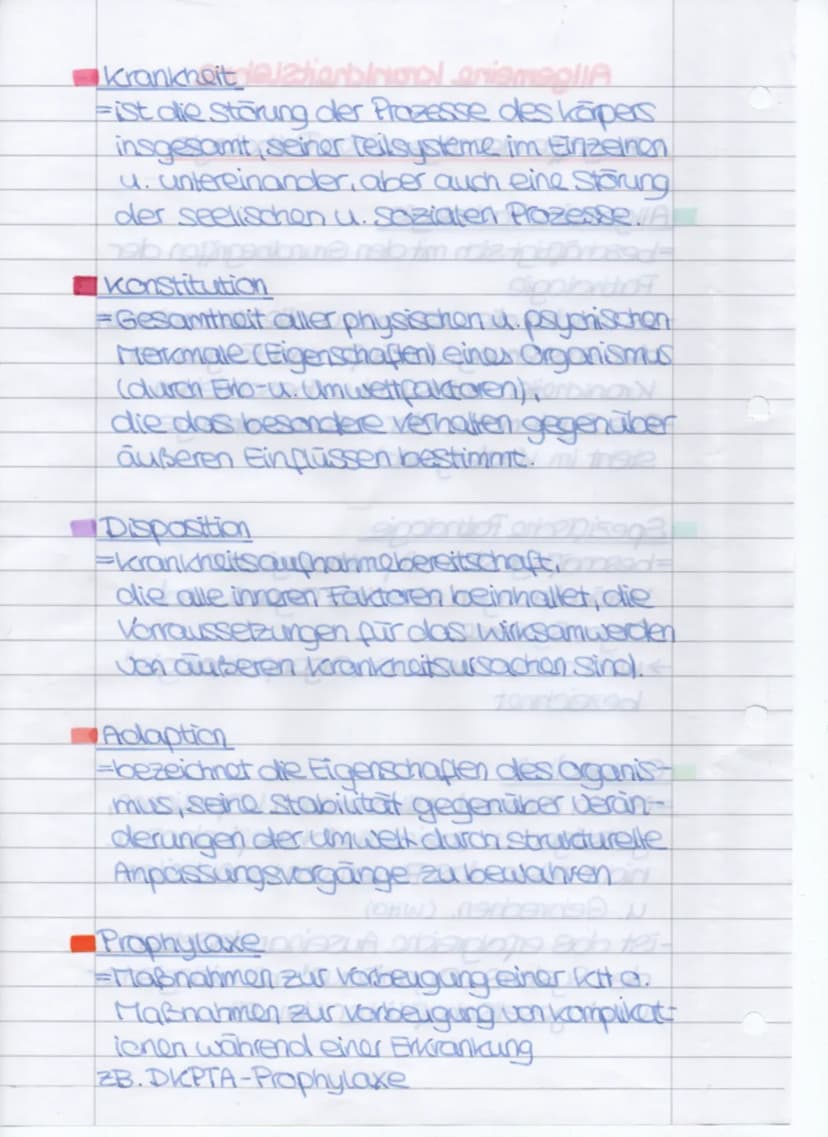 Krankheit
= ist die Störung der Prozesse des Körpers
insgesamt, seiner Teilsysteme im Einzelnen
u. untereinander, aber auch eine Störung
der seelischen u. sozialen Prozesse.
Konstitution
= Gesamtheit aller physischen u. psychischen
Merkmale (Eigenschaften) eines Organismus
(durch Erb- u. Umweltfaktoren),
die das besondere Verhalten gegenüber
äußeren Einflüssen bestimmt.
Disposition
= Krankheitsaufnahmebereitschaft,
die alle inneren Faktoren beinhaltet, die
Vorraussetzungen für das Wirksamwerden
von äußeren Krankheitsursachen sind.
Adaption
= bezeichnet die Eigenschaften des Organis-
mus, seine Stabilität gegenüber Verän-
derungen der Umwelt durch strukturelle
Anpassungsvorgänge zu bewahren
Prophylaxe
= Maßnahmen zur Vorbeugung einer Kht o.
Maßnahmen zur Vorbeugung von Komplikat-
ionen während einer Erkrankung
zB. DKPTA-Prophylaxe